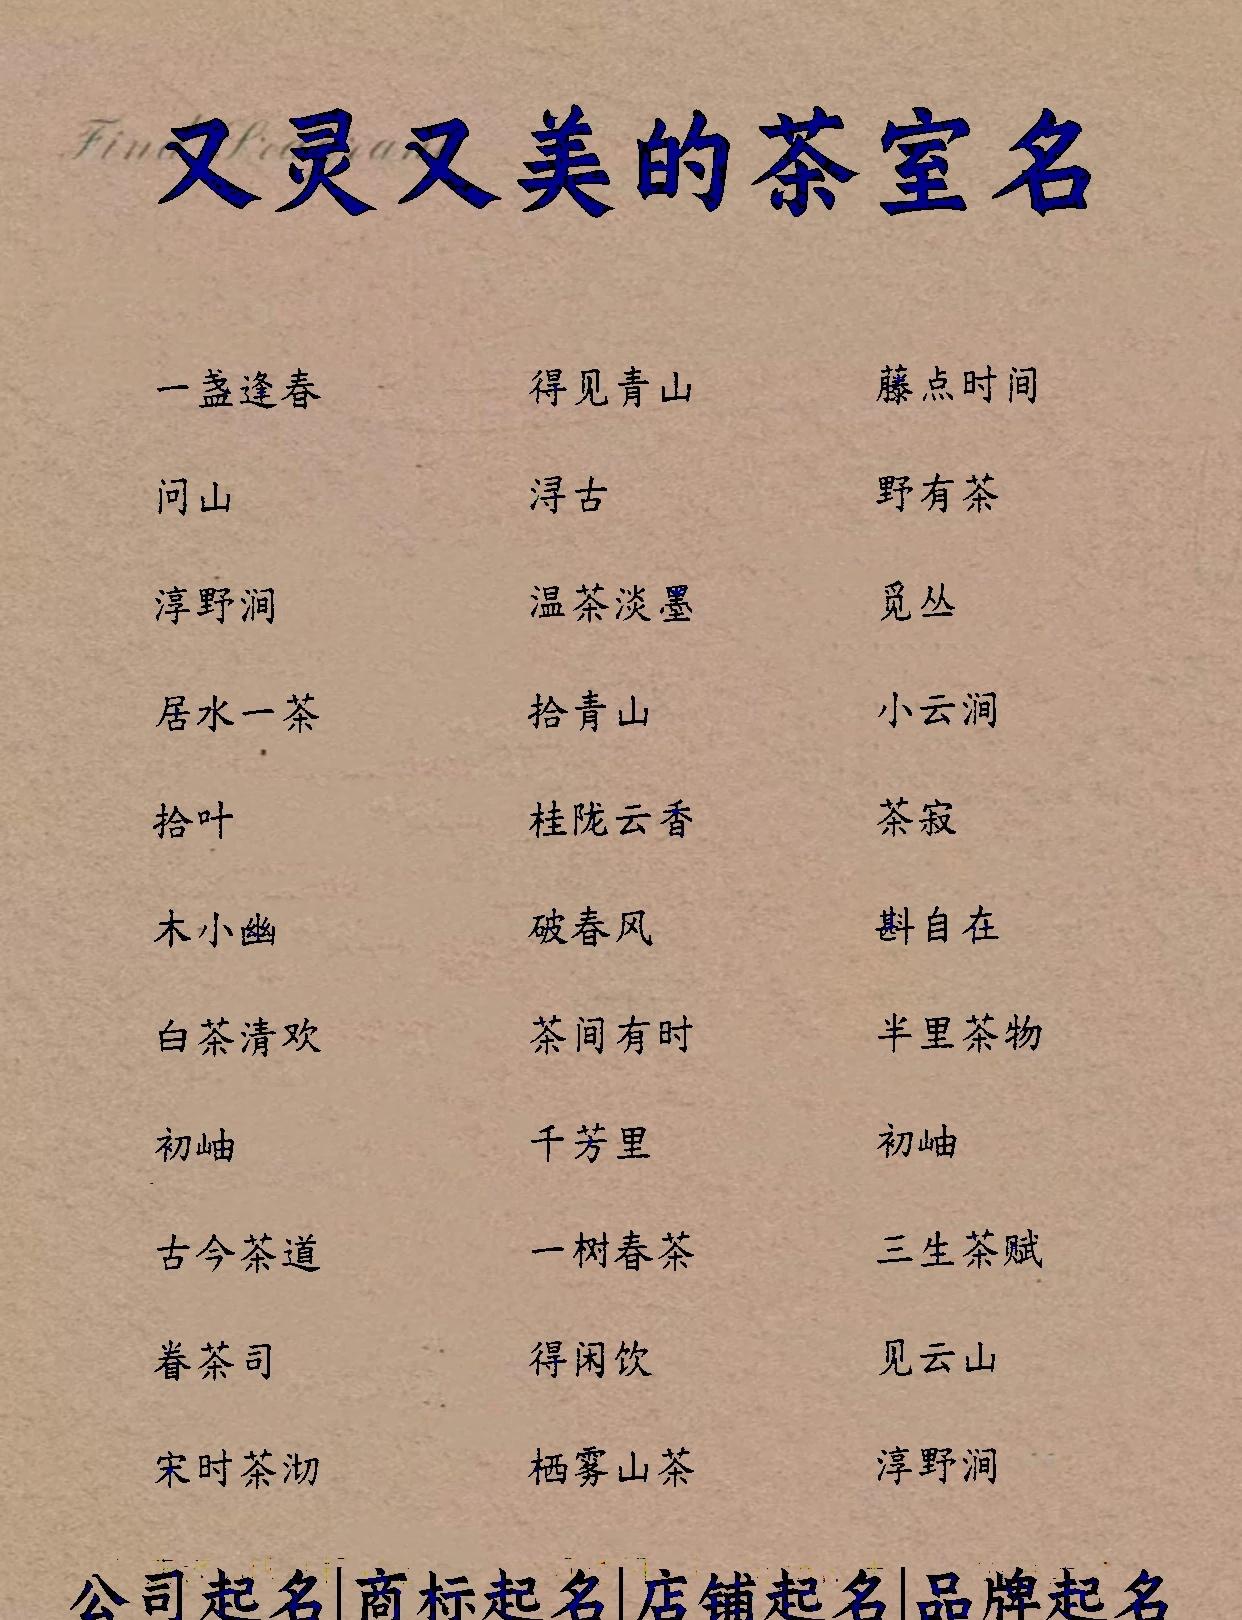 又灵又美的茶室名
一盏逢春 得见青山 藤点时间
问山 浔古 野有茶
淳野涧 温茶淡墨 觅丛
居水一茶 拾青山 小云涧
拾叶 桂陇云香 茶寂
木小幽 破春风 斟自在
白茶清欢 茶间有时 半里茶物
初岫 千芳里 初岫
古今茶道 一树春茶 三生茶赋
眷茶司 得闲饮 见云山
宋时茶沏 栖雾山茶 淳野涧
公司起名|商标起名|店铺起名|品牌起名